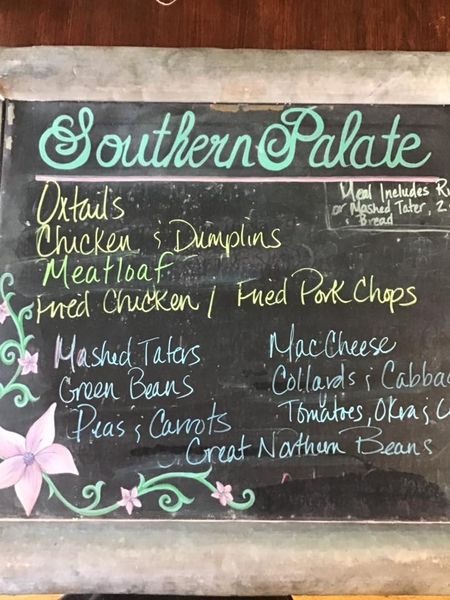 Southern Palate
Oxtails
Meal Includes
or Mashed Tater, 2
& Bread
Chicken & Dumplins
Meatloaf
Fried Chicken / Fried Pork Chops
Mashed Taters
Mac Cheese
Green Beans
Collards &
Peas & Carrots
Tomatoes, Okra &
Great Northern Beans